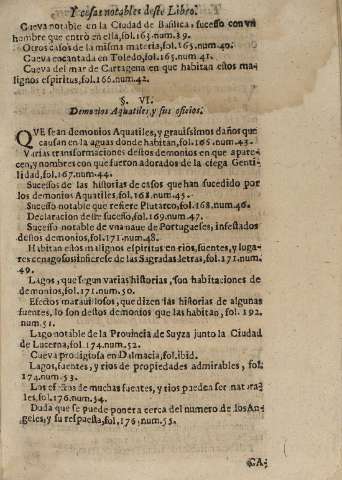 Y cosas notables deste Libro.
Cueva notable en la Ciudad de Basilica, sucesso con vn
hombre que entrò en ella, fol. 163. num. 39.
Otros casos de la misma materia, fol. 165. num. 40.
Cueva encantada en Toledo, fol. 165. num. 41.
Cueva del mar de Cartagena en que habitan estos ma-
lignos espiritus, fol. 166. num. 42.
§. VI.
Demonios Aquatiles, y sus oficios.
QVE sean demonios Aquatiles, y gravissimos daños que
causan en la aguas donde habitan, fol. 166. num. 43.
Varias transformaciones destos demonios en que apare-
cen, y nombres con que fueron adorados de la ciega Genti-
lidad, fol. 167. num. 44.
Sucessos de las historias de casos que han sucedido por
los demonios Aquatiles, fol. 168. num. 45.
Sucesso notable que refiere Plutarco, fol. 168. num. 46.
Declaracion deste sucesso, fol. 169. num. 47.
Sucesso notable de vna nave de Portugueses, infestados
destos demonios, fol. 171. num. 48.
Habitan estos malignos espiritus en rios, fuentes, y luga-
res cenagosos infierese de las Sagradas letras, fol. 171. num.
49.
Lagos, que segun varias historias, son habitaciones de
demonios, fol. 171. num. 50.
Efectos maravillosos, que dizen las historias de algunas
fuentes, lo son destos demonios que las habitan, fol. 192.
num. 51.
Lago notable de la Provincia de Suyza junto la Ciudad
de Lucerna, fol. 174. num. 52.
Cueva prodigiosa en Dalmacia, fol. ibid.
Lagos, fuentes, y rios de propiedades admirables, fol.
174. num. 53.
Los efectos de muchas fuentes, y rios pueden ser natura-
les, fol. 176. num. 54.
Duda que se puede poner acerca del numero de los An-
geles, y su respuesta, fol. 176. num. 55.
CA-